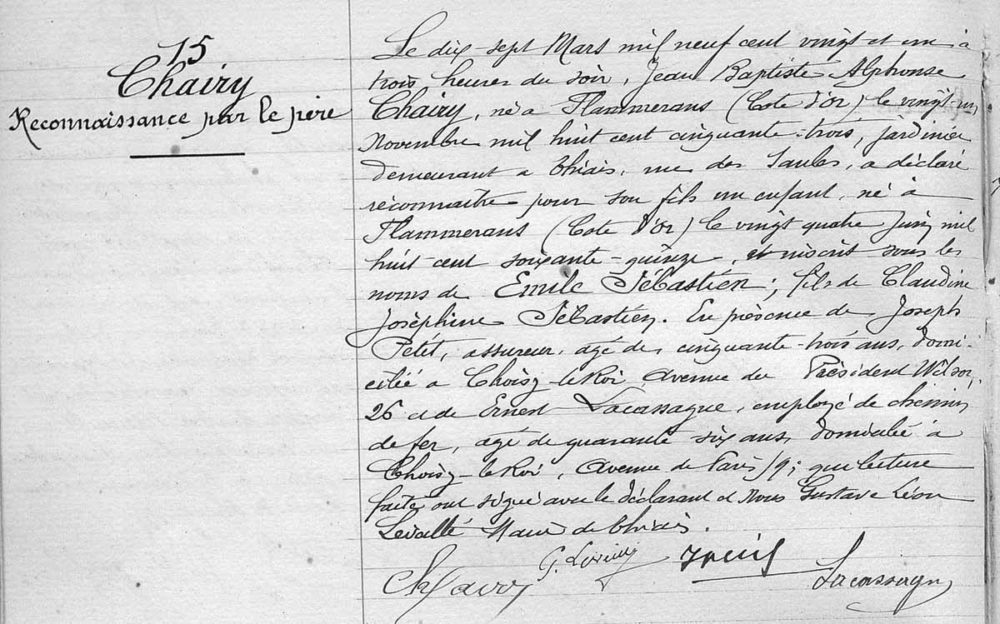 15
Chairy
Reconnaissance par le père
Le dix-sept Mars mil neuf cent vingt et un à
trois heures du soir, Jean Baptiste Alphonse
Chairy, né à Flammerans (Côte d'or) le vingt-un
Novembre mil huit cent cinquante-trois, jardinier
demeurant à Thiais, rue des Saules, a déclaré
reconnaître pour son fils un enfant, né à
Flammerans (Côte d'or) le vingt quatre Juin mil
huit cent soixante-quinze, et inscrit sous les
noms de Emile Sébastien; fils de Claudine
Joséphine Sébastien. En présence de Joseph
Petit, assureur, agé de cinquante-trois ans, domi-
cilié à Choisy-le-Roi avenue du Président Wilson,
26 et de Ernest Lacassagne, employé de chemin
de fer, agé de quarante six ans, domicilié à
Choisy-le-Roi, avenue de Paris 19; qui lecture
faite ont signé avec le déclarant et Nous Gustave Léon
Levaillé Maire de Thiais.
Lacassagne